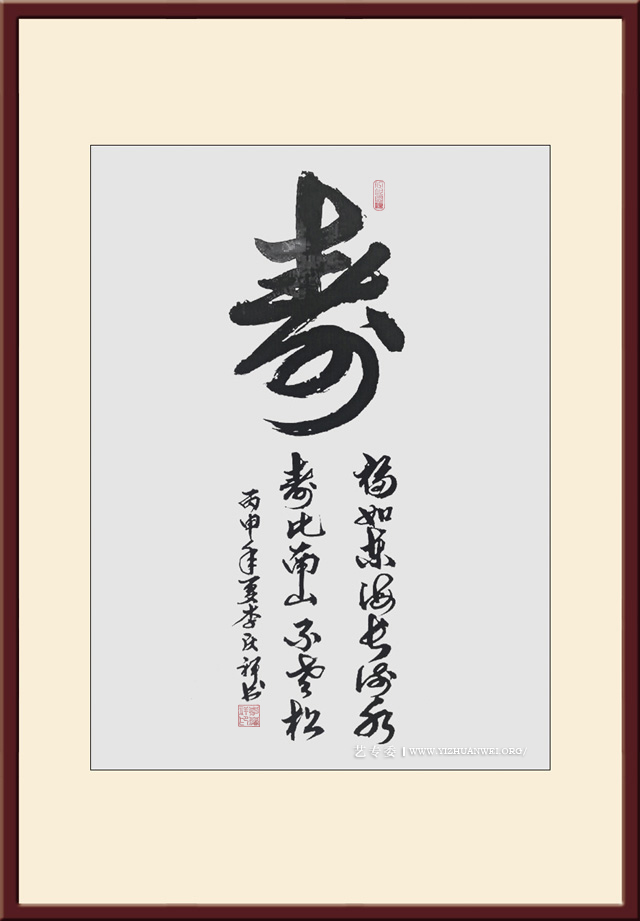 寿
福如东海长流水
寿比南山不老松
丙申年夏李庆祥书
艺专委 | WWW.YIZHUANWEI.ORG/